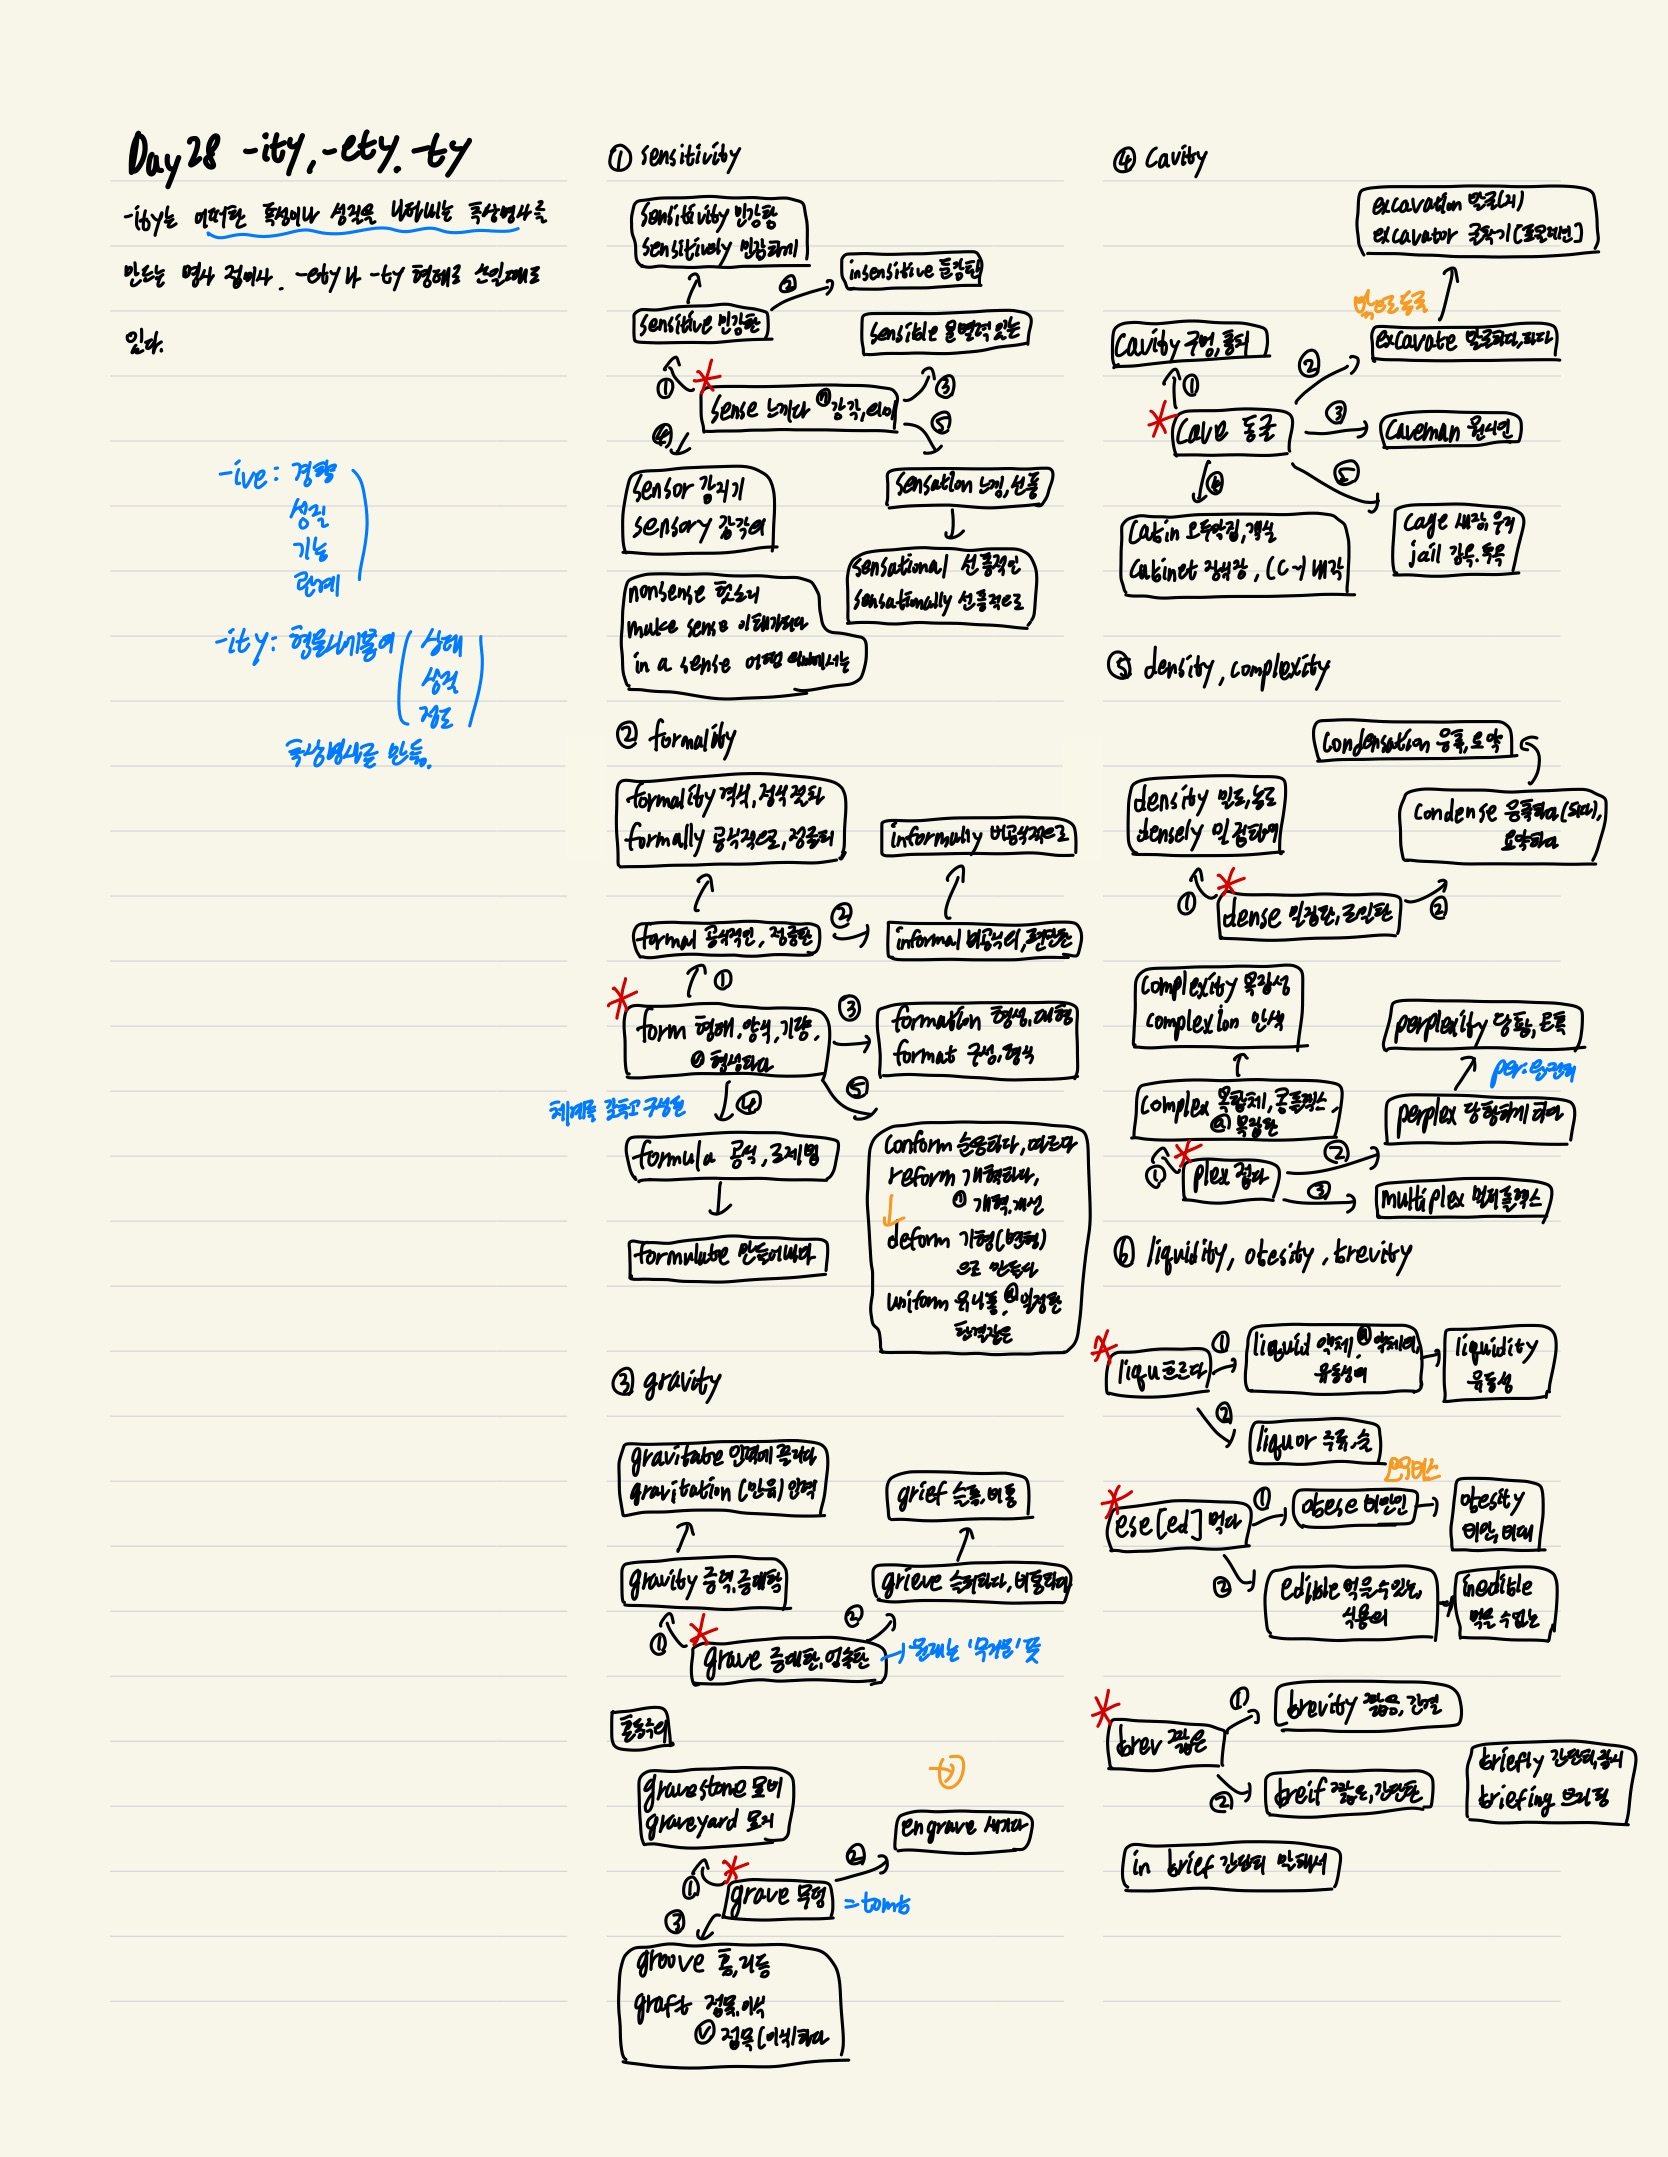 Day 28 -ity, -ety. -ty
-ity는 어떠한 특성이나 성질을 나타내는 추상명사를
만드는 명사 접미사. -ety나 -ty 형태로 쓰일때도
있다.
-ive: 경향
성질
기능
관계
-ity: 상태
성질
정도
추상명사를 만듦.
① sensitivity
sensitivity 민감함
sensitively 민감하게
② insensitive 둔감한
sensitive 민감한
sensible 분별력 있는
① ③
sense 느끼다 ⓝ감각, 의미
④ ⑤
sensor 감지기
sensory 감각의
sensation 느낌, 선풍
sensational 선풍적인
sensationally 선풍적으로
nonsense 헛소리
make sense 이해가되다
in a sense 어떤 의미에서는
② formality
formality 격식, 정식절차
formally 공식적으로, 정중히
informally 비공식적으로
formal 공식적인, 정중한
②
informal 비공식의, 편안한
①
form 형태, 양식, 기량,
ⓥ 형성하다
③
formation 형성, 대형
format 구성, 형식
체계를 갖추고 구성된
④ ⑤
formula 공식, 조제법
formulate 만들어내다
conform 순응하다, 따르다
reform 개혁하다,
ⓝ 개혁, 개선
deform 기형(변형)
으로 만들다
uniform 유니폼, ⓐ일정한
한결같은
③ gravity
gravitate 인력에 끌리다
gravitation (만유)인력
grief 슬픔, 비통
gravity 중력, 중대함
grieve 슬퍼하다, 비통하다
① ②
grave 중대한, 엄숙한
→ 본래는 '무거운' 뜻
혼동주의
gravestone 묘비
graveyard 묘지
engrave 새기다
① ②
grave 무덤
= tomb
③
groove 홈, 리듬
graft 접목, 이식
ⓥ 접목(이식)하다
④ cavity
excavation 발굴(지)
excavator 굴착기 [포클레인]
밖으로 동굴
cavity 구멍, 충치
excavate 발굴하다, 파다
① ②
cave 동굴
③
caveman 원시인
④ ⑤
cabin 오두막집, 객실
cabinet 장식장, (C-) 내각
cage 새장, 우리
jail 감옥, 투옥
⑤ density, complexity
condensation 응축, 요약
density 밀도, 농도
densely 밀집하여
condense 응축하다(되다),
요약하다
①
dense 밀집한, 조밀한
②
complexity 복잡성
complexion 안색
perplexity 당황, 혼톡
per: 완전히
complex 복합체, 콤플렉스,
ⓐ 복잡한
perplex 당황하게 하다
① plex 접다 ②
③ multiplex 멀티플렉스
⑥ liquidity, obesity, brevity
liqu 흐르다
①
liquid 액체 ⓐ액체의,
유동성의
liquidity
유동성
②
liquor 주류, 술
ese[ed] 먹다
①
obese 비만인
obesity
비만, 비대
②
edible 먹을수있는,
식용의
inedible
먹을 수 없는
brev 짧은
①
brevity 짧음, 간결
②
breif 짧은, 간단한
briefly 간단히, 잠시
briefing 브리핑
in brief 간단히 말해서